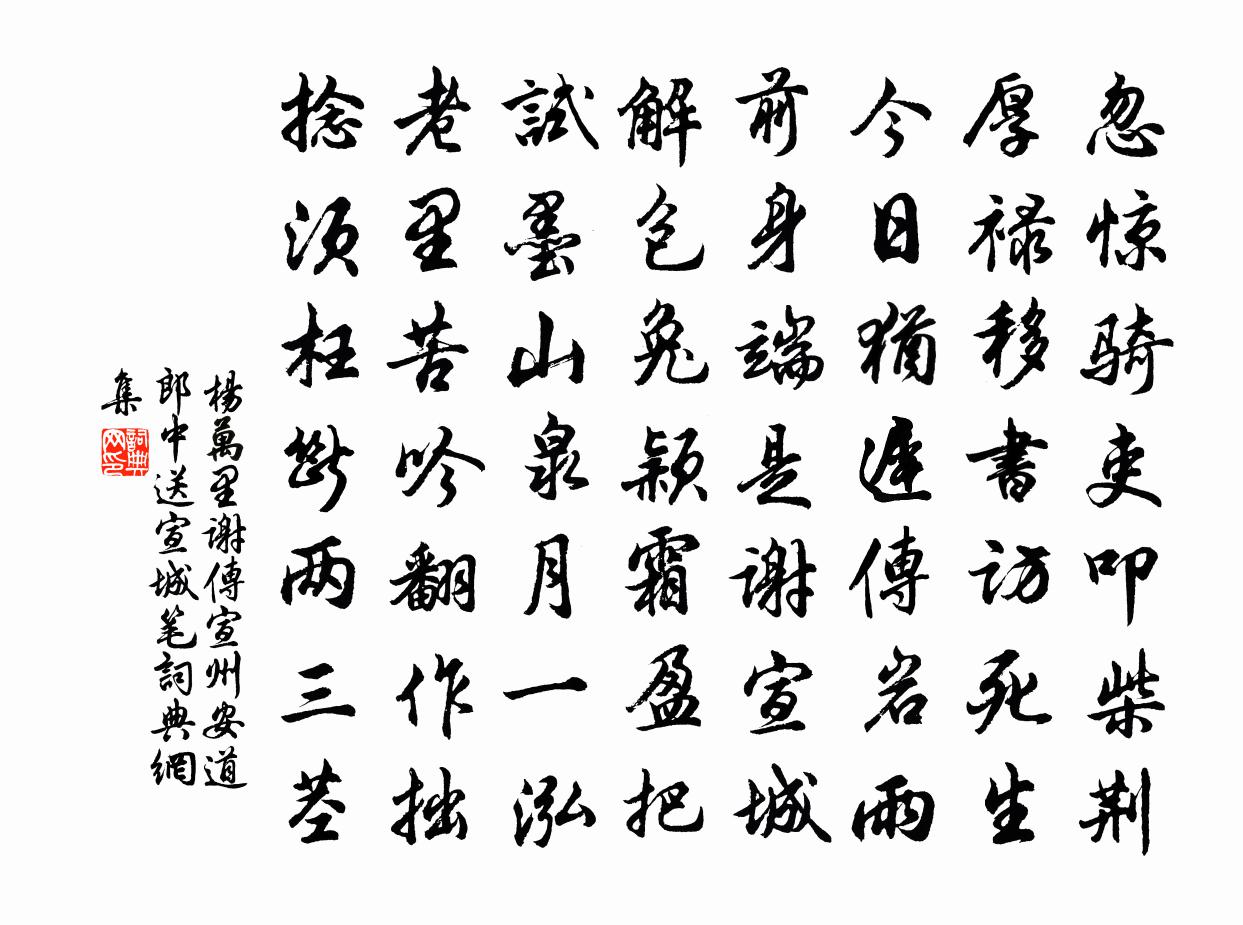 忽惊骑吏叩柴荆
厚禄移書访死生
今日猶遲傳岩雨
前身端是谢宣城
解包兔颖霜盈把
試墨山泉月一泓
老里苦吟翻作拙
捻须枉断两三茎
楊萬里谢傳宣州安道
郎中送宣城笔詞典網
集
詞典網印